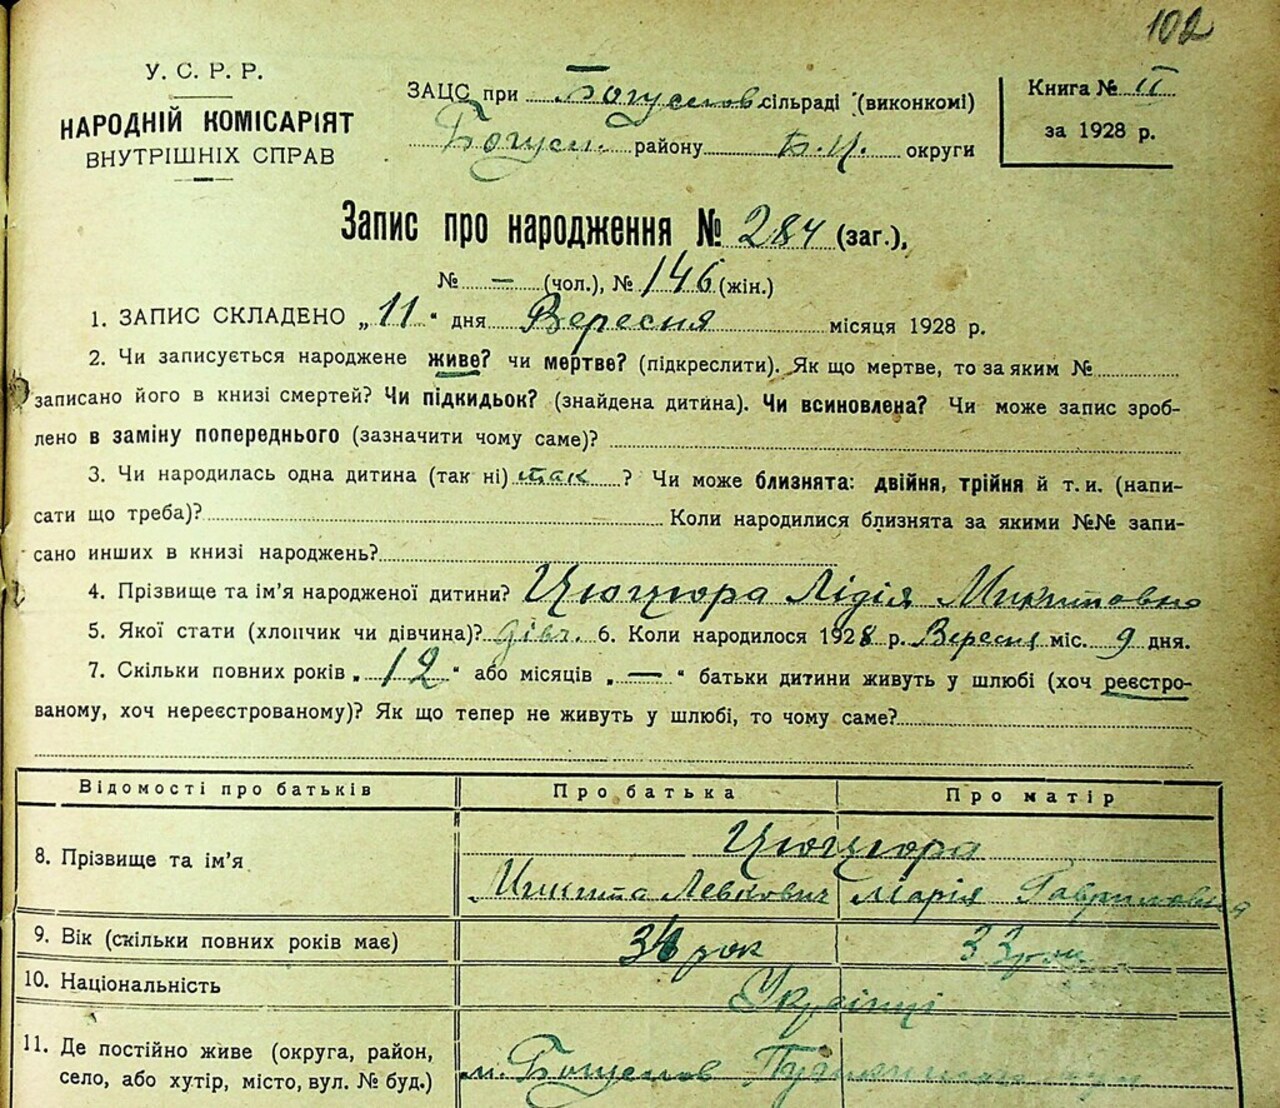 102
У. С. Р. Р.
НАРОДНІЙ КОМІСАРІЯТ
ВНУТРІШНІХ СПРАВ
ЗАЦС при Богуслов сільраді (виконкомі)
Богусл. району Б.Ц. округи
Книга № II
за 1928 р.
Запис про народження № 284 (заг.),
№ — (чол.), № 146 (жін.)
1. ЗАПИС СКЛАДЕНО „11“ дня Вересня місяця 1928 р.
2. Чи записується народжене живе? чи мертве? (підкреслити). Як що мертве, то за яким №
записано його в книзі смертей? Чи підкидьок? (знайдена дитина). Чи всиновлена? Чи може запис зроб-
лено в заміну попереднього (зазначити чому саме)?
3. Чи народилась одна дитина (так ні) так ? Чи може близнята: двійня, трійня й т. и. (напи-
сати що треба)? Коли народилися близнята за якими №№ запи-
сано инших в книзі народжень?
4. Прізвище та ім’я народженої дитини? Цюцюра Лідія Микитовна
5. Якої стати (хлопчик чи дівчина)? дівч. 6. Коли народилось 1928 р. Вересня міс. 9 дня.
7. Скільки повних років „12“ або місяців „—“ батьки дитини живуть у шлюбі (хоч реєстро-
ваному, хоч нереєстрованому)? Як що тепер не живуть у шлюбі, то чому саме?
Відомості про батьків Про батька Про матір
8. Прізвище та ім’я Цюцюра
Микита Левкович Марія Гавриловна
9. Вік (скільки повних років має) рок 33 рок
10. Національність Українці
11. Де постійно живе (округа, район,
село, або хутір, місто, вул. № буд.) м. Богуслов